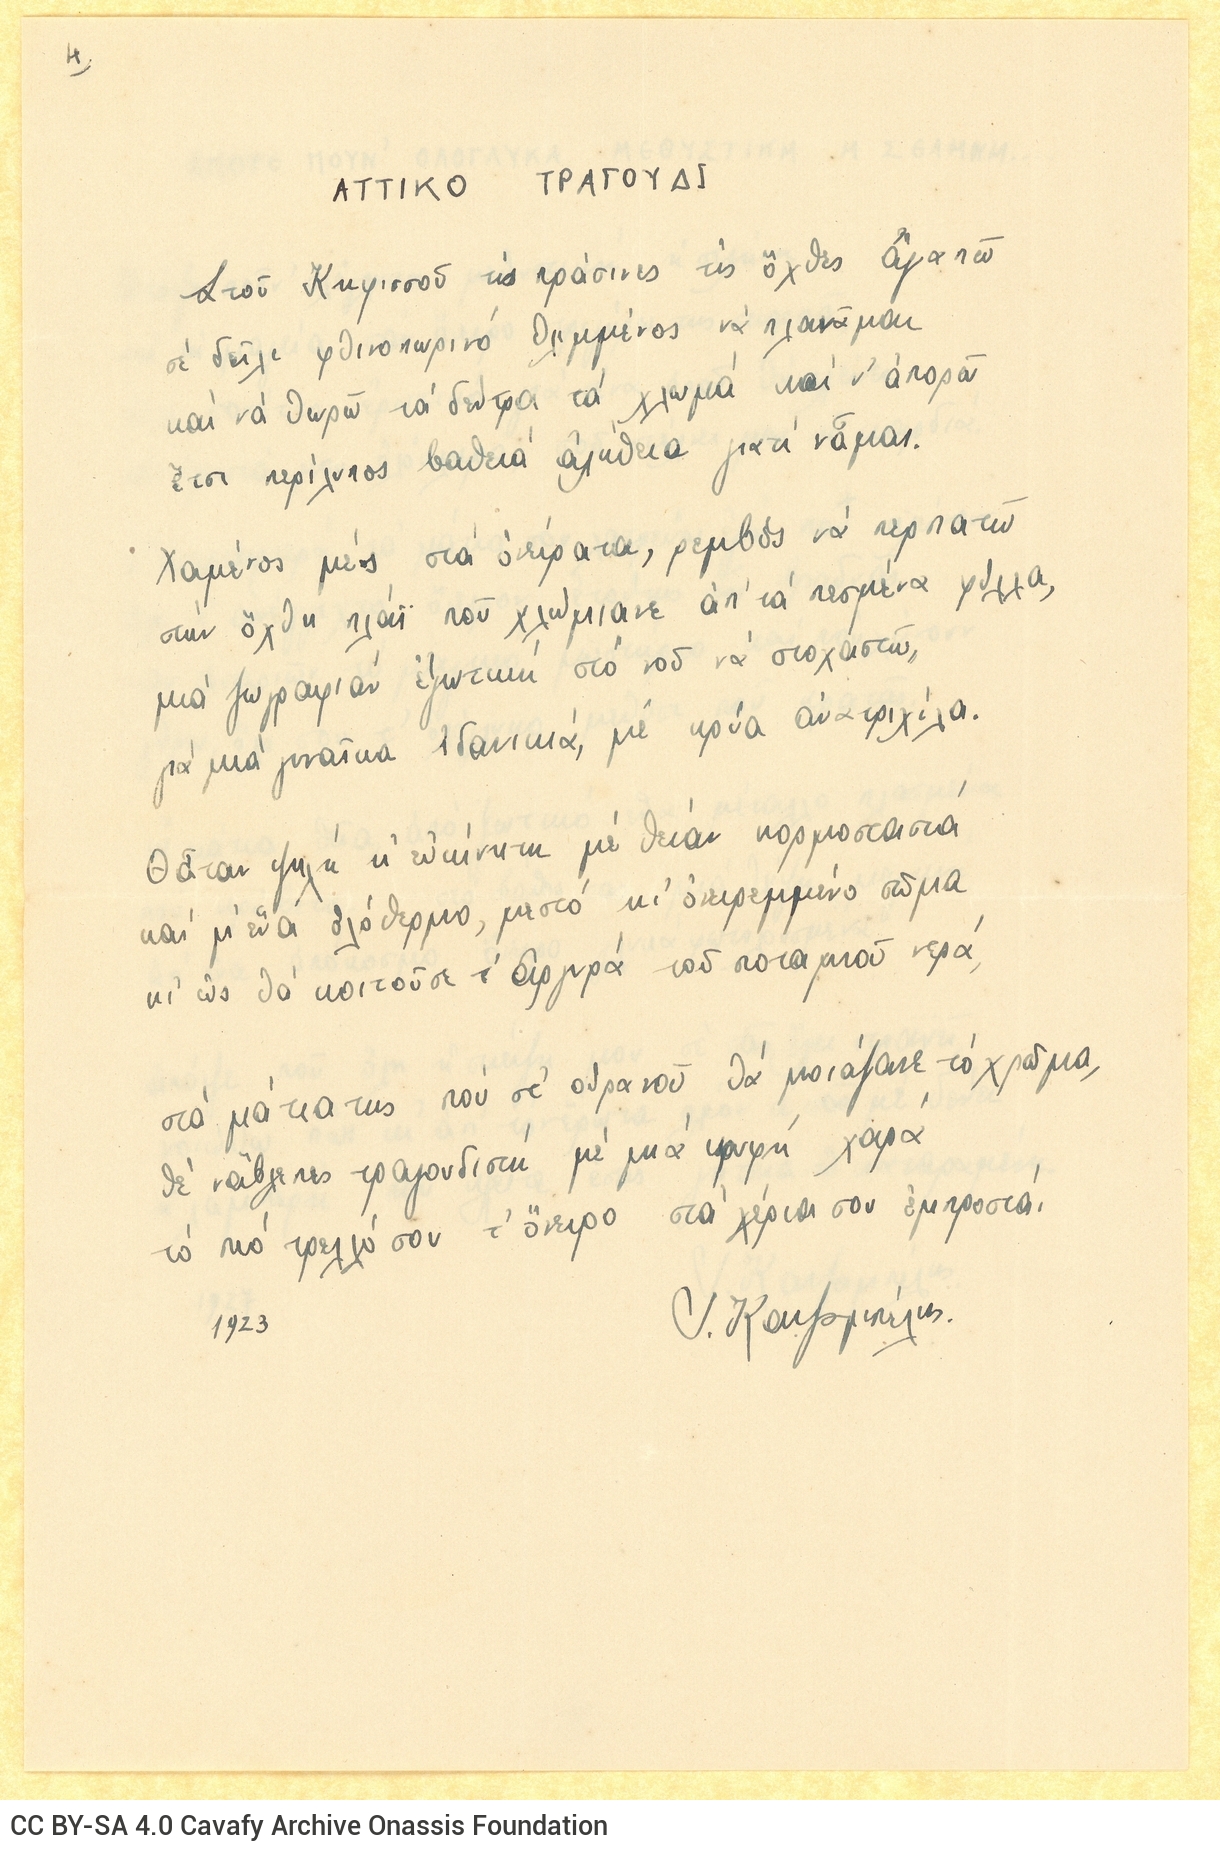 4.
ΑΤΤΙΚΟ ΤΡΑΓΟΥΔΙ
Στοῦ Κηφισσοῦ τὶς πράσινες τὶς ὄχθες ἀγαπῶ
σὲ δεῖλι φθινοπωρινό θλιμμένος νὰ πλανᾶμαι
καὶ νὰ θωρῶ τὰ δέντρα τὰ χλωμά καὶ ν' ἀπορῶ
ἔτσι περίλυπος βαθειά ἀλήθεια γιατί νἆμαι.
Χαμένος μές στὰ ὀνείρατα, ρεμβὸς νὰ περπατῶ
στὴν ὄχθη πλάϊ ποῦ χλώμιανε ἀπ' τὰ πεσμένα φύλλα,
μιὰ ζωγραφιὰν ἐξωτική στὸ νοῦ νὰ στοχαστῶ,
γιὰ μιὰ γυναῖκα ἰδανικιά, μὲ κρύα ἀνατριχίλα.
Θἆταν ψηλὴ κ' εὐκίνητη μὲ θείαν κορμοστασιά
καὶ μ' ἕνα ὁλόθερμο, μεστό κι' ὀνειρεμμένο σῶμα
κι' ὡς θὰ κοιτοῦσε τ' ἀργυρά τοῦ ποταμιοῦ νερά,
στὰ μάτια της ποὺ σὲ οὐρανοῦ θὰ μοιάζανε τὸ χρῶμα,
θὲ νἄβλεπες τραγουδιστή μὲ μιὰ κρυφή χαρά
τὸ πιὸ τρελλό σου τ' ὄνειρο στὰ χέρια σου ἐμπροστά.
1923
Καψαμπέλης.
CC BY-SA 4.0 Cavafy Archive Onassis Foundation